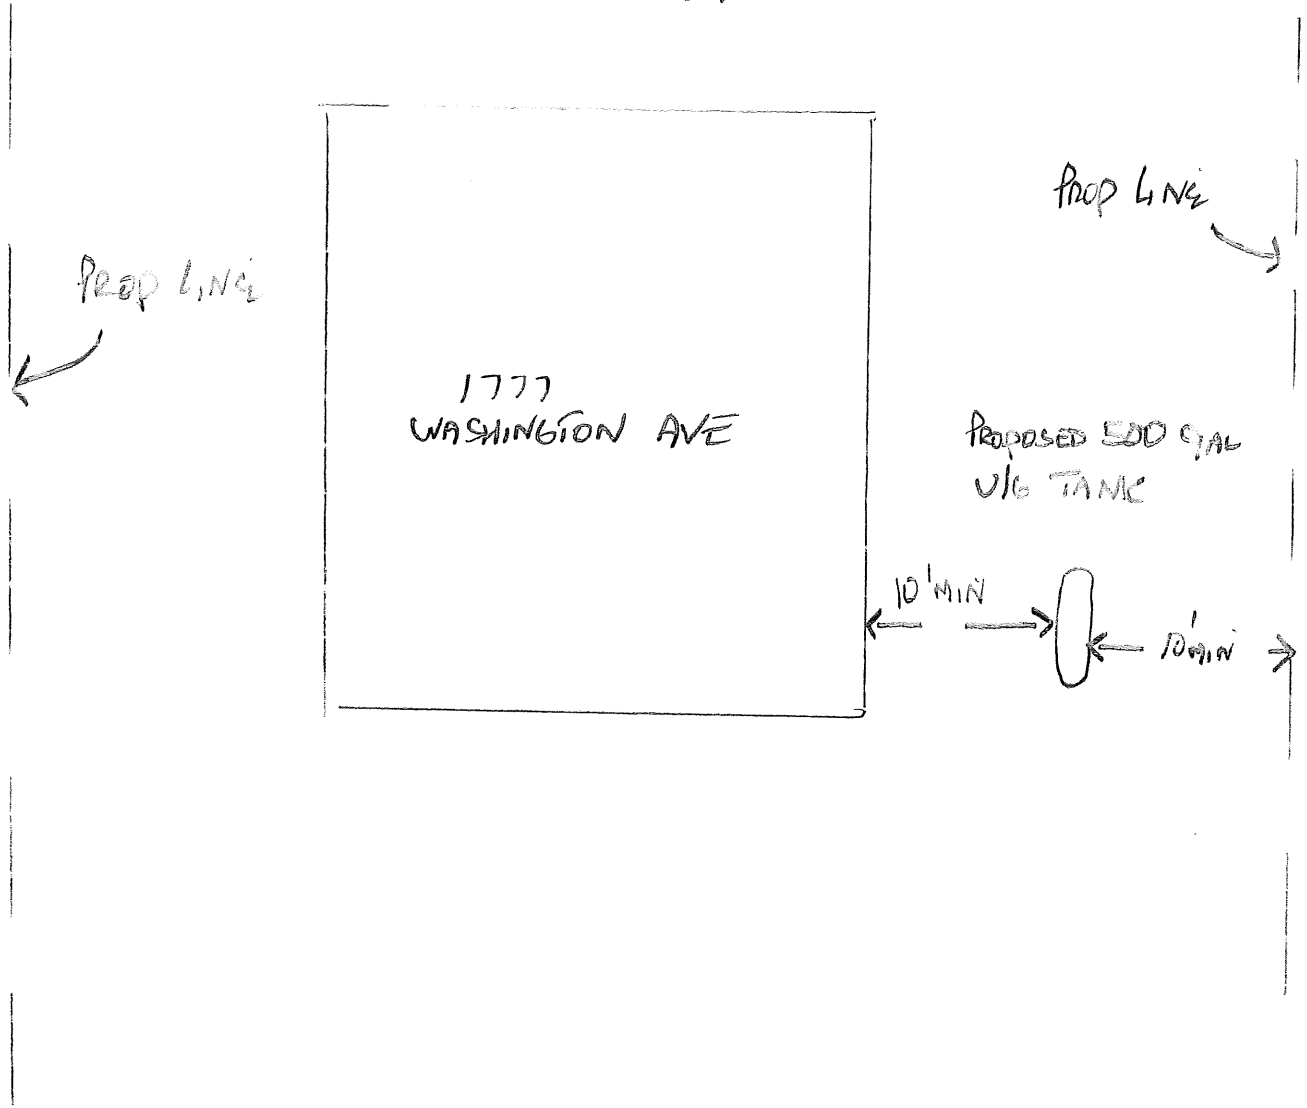 PROP LINE
PROP LINE
1777
WASHINGTON AVE
PROPOSED 500 GAL
U/G TANK
10' MIN
10' MIN